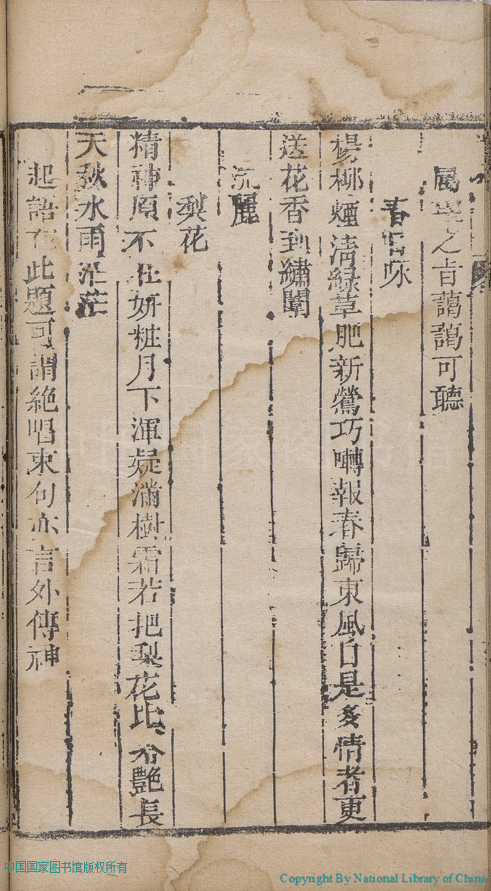 屬世之音藹藹可聽
春日咏
楊柳煙清綠草肥新鶯巧囀報春歸東風自是多情者更
送花香到繡闈
流麗
梨花
精神原不在妍粧月下渾疑滿樹霜若把梨花比容艷長
天秋水雨茫茫
起語在此題可謂絕唱末句亦言外傳神
中国国家图书馆版权所有
Copyright By National Library of China